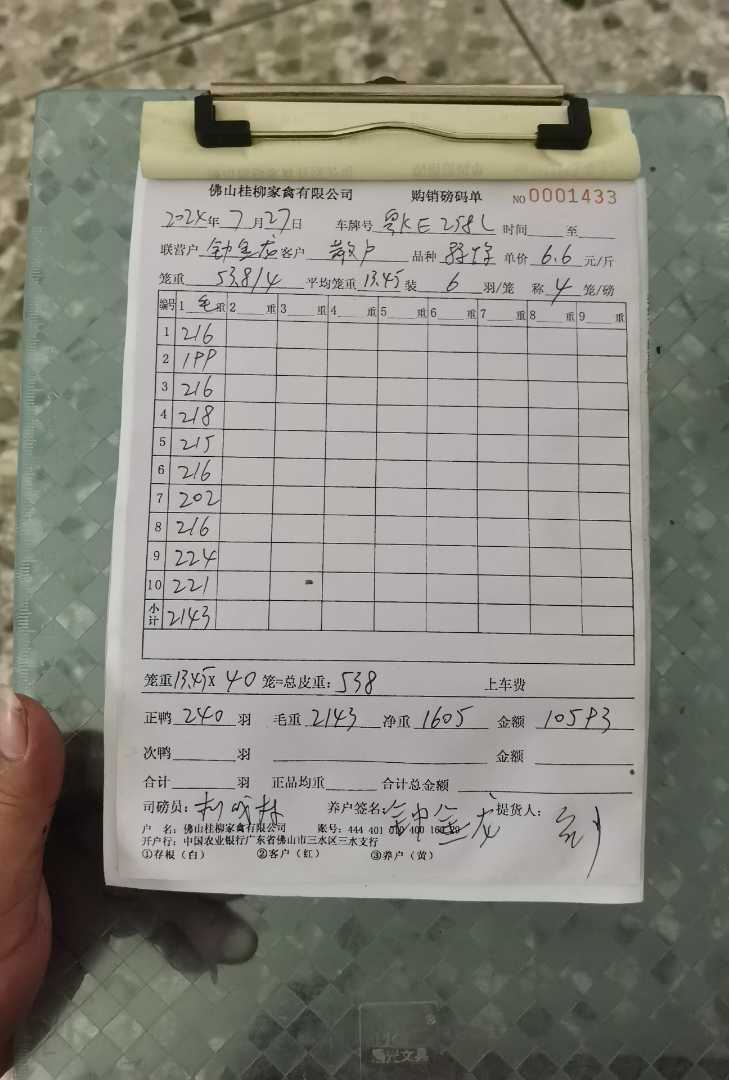 佛山桂柳家禽有限公司 购销磅码单 NO 0001433
2024年7月27日 车牌号 粤KE258L 时间 至
联营户 钟金龙 客户 散户 品种 单价 6.6 元/斤
笼重 53.8/4 平均笼重 13.45 装 6 羽/笼 称 4 笼/磅
编号 1 毛 重 2 重 3 重 4 重 5 重 6 重 7 重 8 重 9 重
1 216
2 199
3 216
4 218
5 215
6 216
7 202
8 216
9 224
10 221
小计 2143
笼重 13.45 x 40 笼=总皮重: 538 上车费
正鸭 240 羽 毛重 2143 净重 1605 金额 10593
次鸭 羽 金额
合计 羽 正品均重 合计总金额
司磅员: 养户签名: 钟金龙 提货人:
户 名: 佛山桂柳家禽有限公司 账号: 444 401 010 400 160
开户行: 中国农业银行广东省佛山市三水区三水支行
①存根(白) ②客户(红) ③养户(黄)